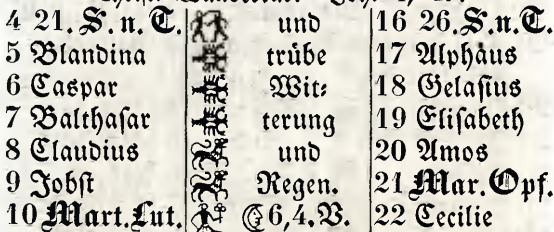 4 21. S. n. T. und 16 26. S. n. T.
5 Blandina trübe 17 Alphäus
6 Caspar Wit⸗ 18 Gelasius
7 Balthasar terung 19 Elisabeth
8 Claudius und 20 Amos
9 Jobst Regen. 21 Mar. Opf.
10 Mart. Lut. ☾ 6,4. V. 22 Cecilie